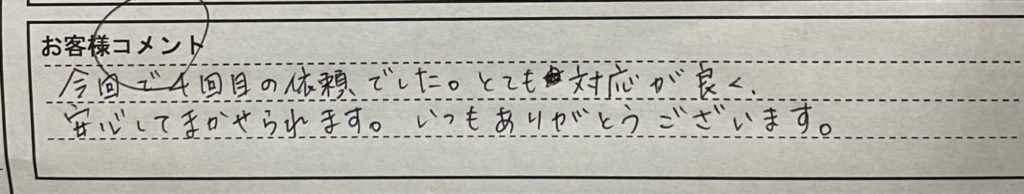 お客様コメント
今回で4回目の依頼でした。とても対応が良く、
安心してまかせられます。いつもありがとうございます。